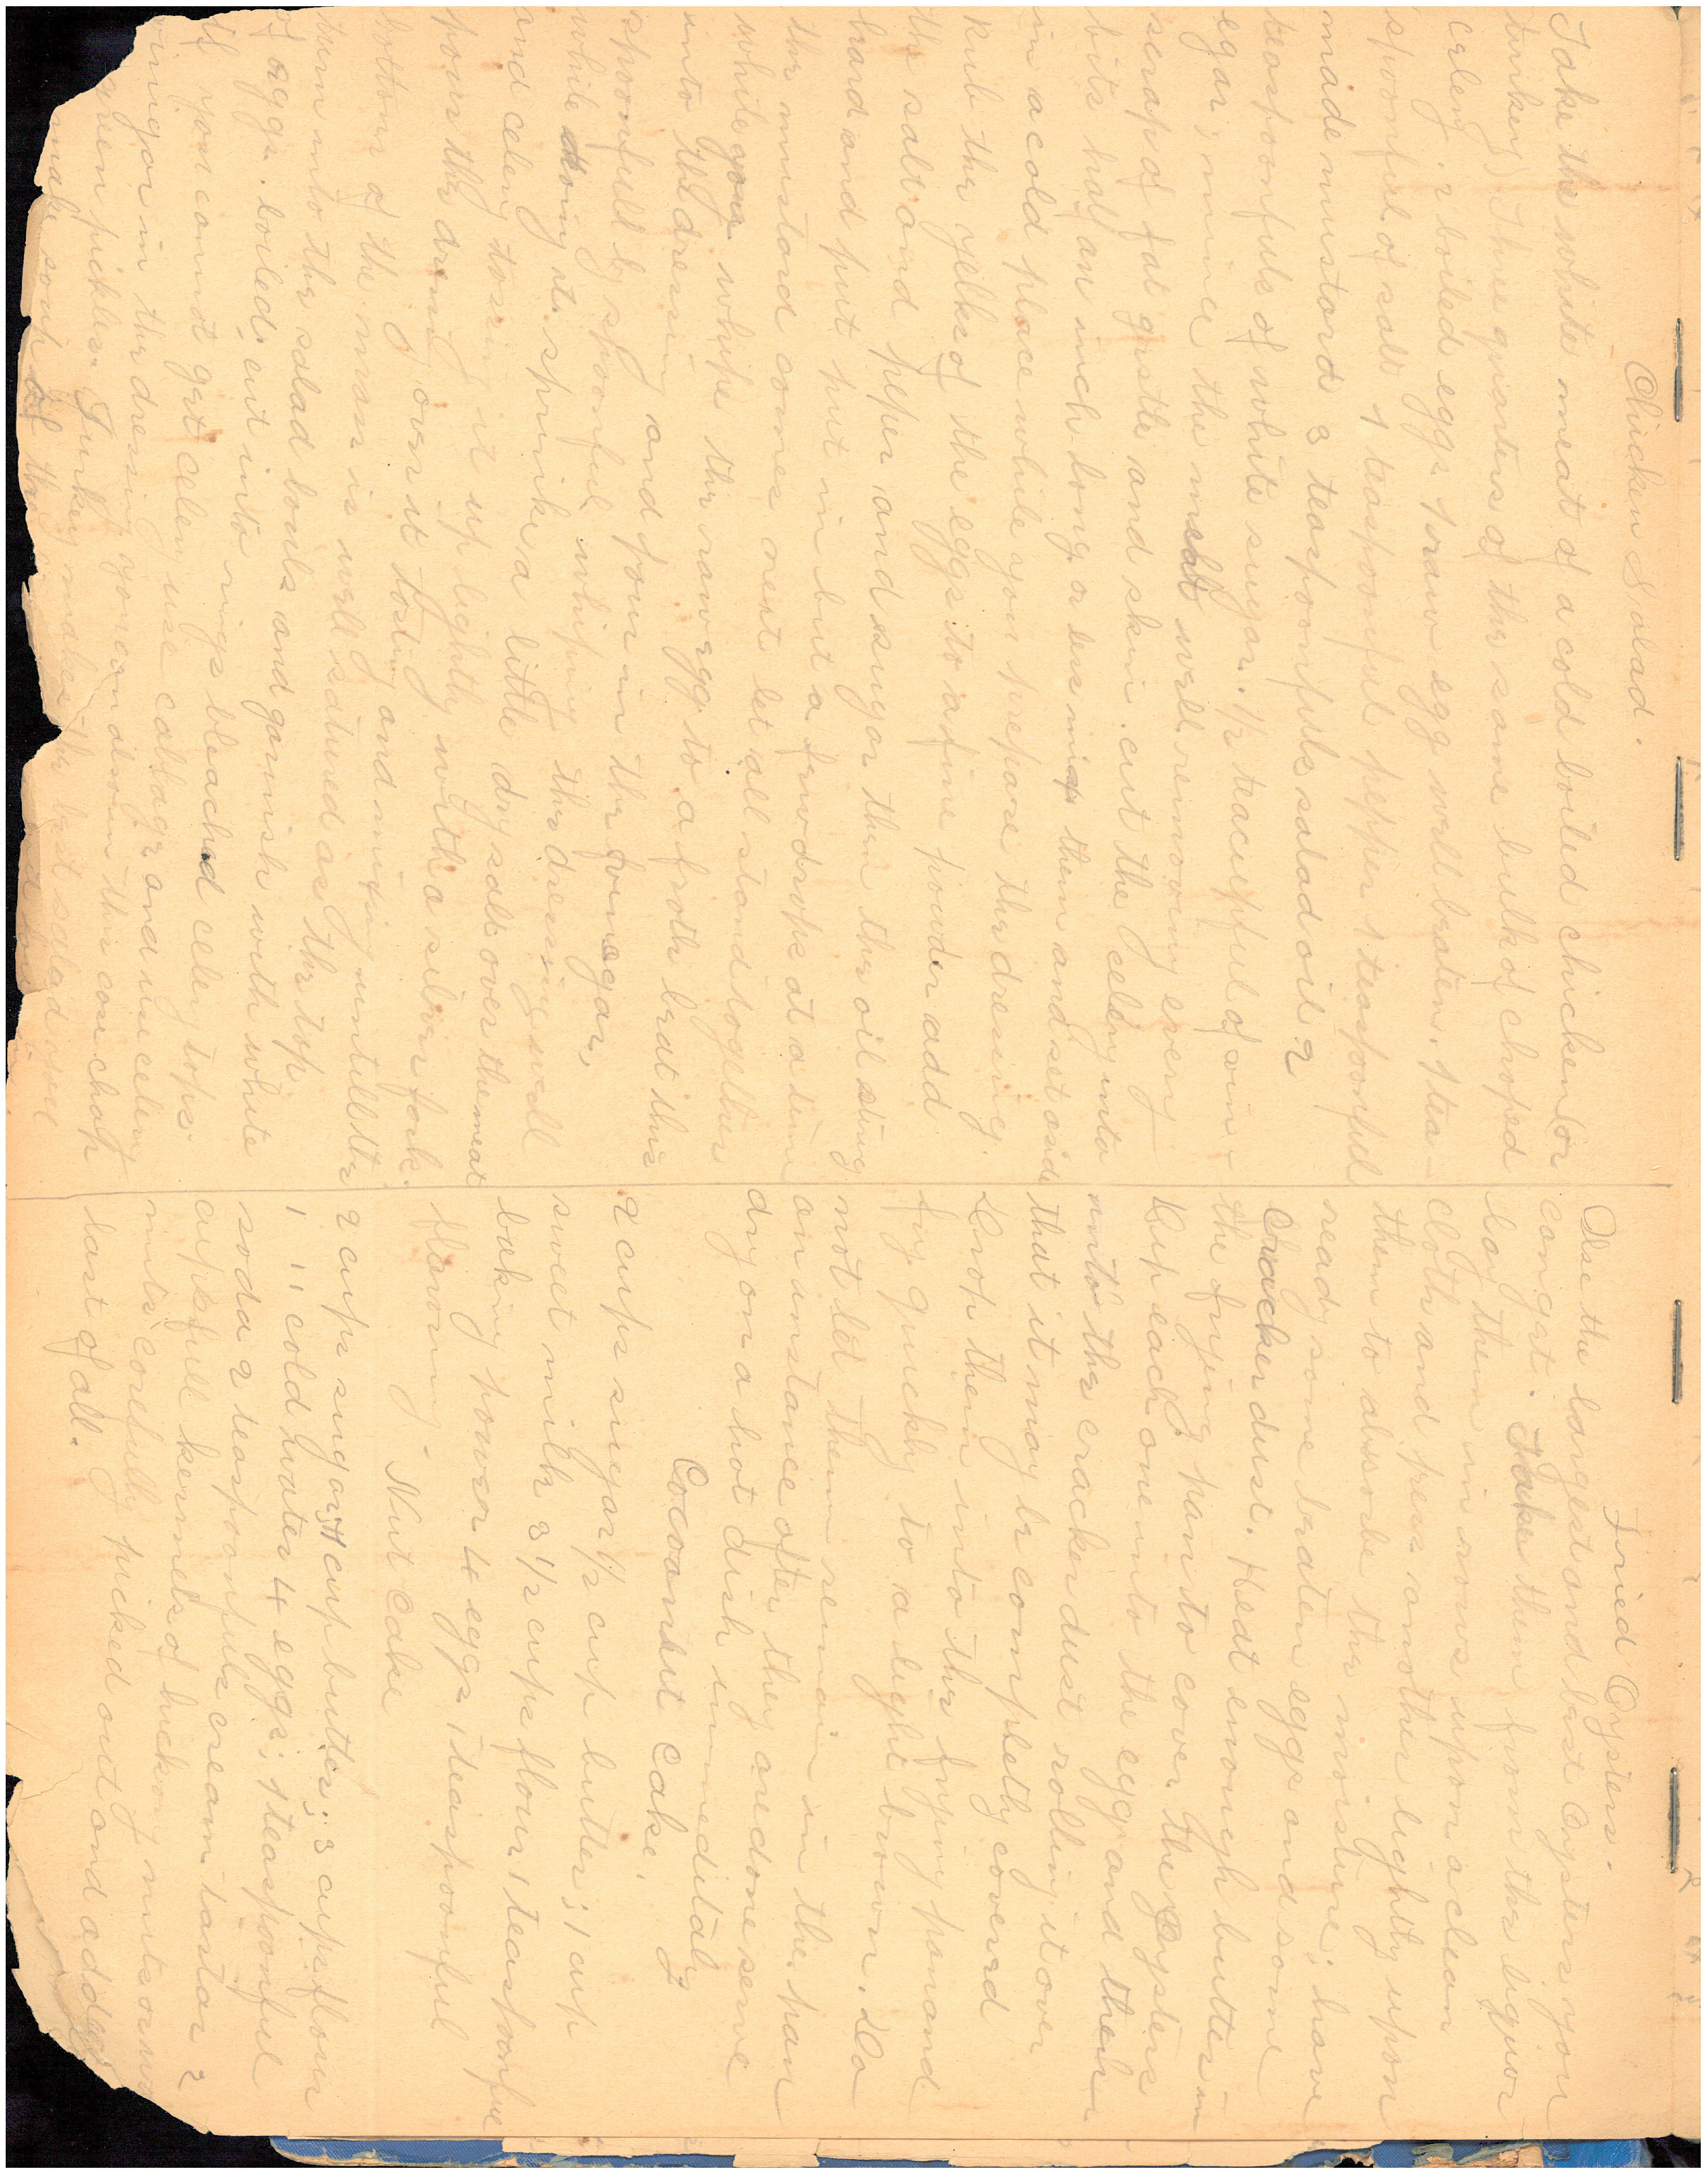 Chicken Salad.
Take the white meat of a cold boiled chicken (or
turkey) Three quarters of the same bulk of choped
celery, 2 boiled eggs 1 raw egg well beaten, 1 tea-
spoonful of salt 1 teaspoonful pepper 1 teaspoonful
made mustard 3 teaspoonfuls salad oil 2
teaspoonfuls of white sugar. 1/2 teacupful of vin-
egar; mince the meat well removing every
scrap of fat gristle and skin. cut the celery into
bits half an inch long or less mix them and set aside
in a cold place while you prepare the dressing.
Rub the yelks of the eggs to a fine powder add
the salt and peper and sugar then the oil
hard and put in but a few drops at a time
the mustard comes next let all stand together
while you whipe the raw egg to a froth beat this
into the dressing and pour in the vinegar,
spoonfull by spoonful whiping the dressing well
while doing it. sprinke a little dry salt over the meat
and celery tossing it up lightly with a silver fork.
pour the dressing over it tosting and mixing untill the
bottom of the mass is well satured as the top
turn into the salad bouls and garnish with white
of eggs. boiled, cut into rings bleached celery tops.
if you cannot get celery use cabbage and use celery
vinegar in the dressing you can also in this case chop
green pickles. Turkey makes the best salad
make soup of the
Fried Oysters.
Use the largest and best Oysters you
can get. Take them from the liquor
lay them in rows upon a clean
cloth and press another lightly upon
them to absorbe the moisture; have
ready some beaten eggs and some
cracker dust. Heat enough butter in
the frying pan to cover the Oysters
Dip each one into the egg and then
into the cracker dust rolling it over
that it may be completly coverd
Drop them into the frying pan and
fry quickly to a light brown. Do
not let them remain in the pan
an instance after they are done serve
dry on a hot dish immeditaly
Cocoanut Cake.
2 cups sugar 1/2 cup butter; 1 cup
sweet milk 3 1/2 cups flour 1 teaspoonful
baking power 4 eggs 1 teaspoonful
flavoring.
Nut Cake
2 cups sugar, 1 cup butter; 3 cups flour
1 " cold water 4 eggs; 1 teaspoonful
soda 2 teaspoonfuls cream tartar 2
cupsfull kernnels of hickory nuts or
nuts carefully picked out and added
last of all.